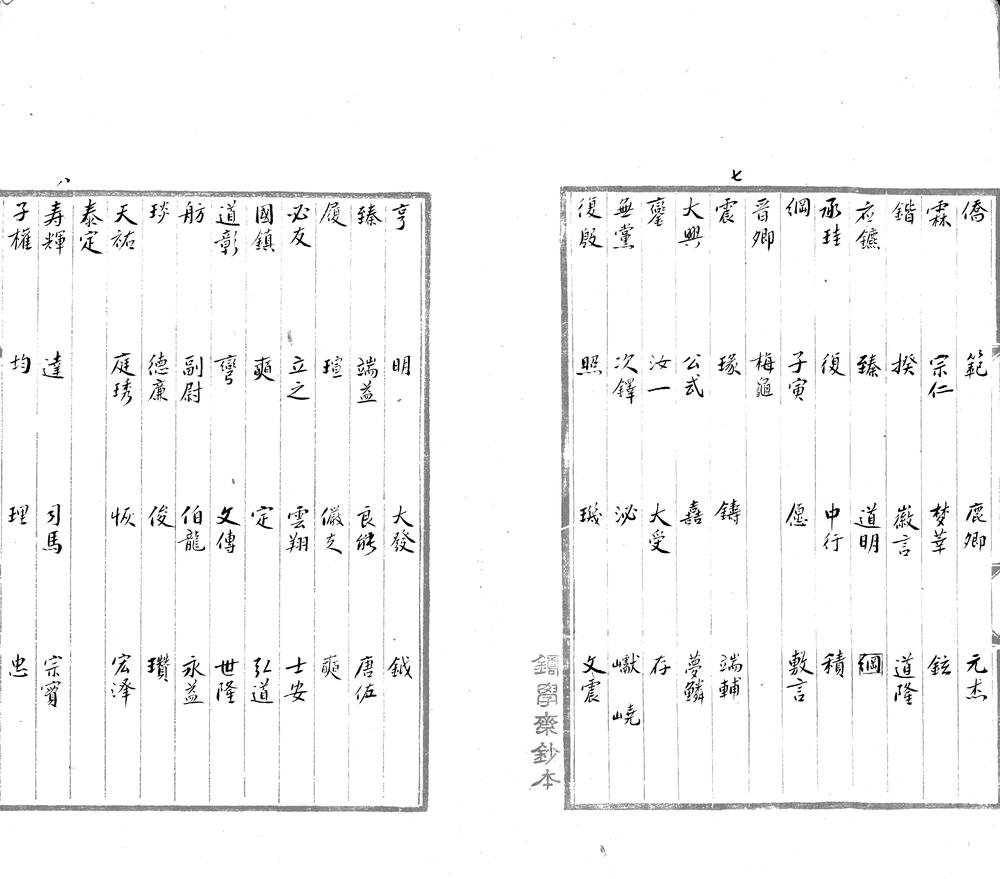 七
僑 範 鹿卿 元杰
霖 宗仁 梦莘 鉉
鍇 揆 徽言 道隆
應鑣 臻 道明 綱
承珪 復 中行 積
綱 子寅 愿 敷言
晉卿 梅龜
震 瑑 鑄 端輔
大興 公式 嘉 夢鱗
夔 汝一 大受 存
無黨 次鐸 泌 巘 嶢
復殷 照 璣 文震
學齋鈔本
八
亨 明 大發 鉞
臻 端益 良能 唐佐
履 瑄 儼夫 奭
必友 立之 雲翔 士安
國鎮 奭 定 弘道
道彰 彎 文傳 世隆
舫 副尉 伯龍 永益
琰 德廉 俊 瓚
天祐 庭琇 恢 宏澤
泰定
寿輝 達 司馬 宗賓
子權 均 理 忠